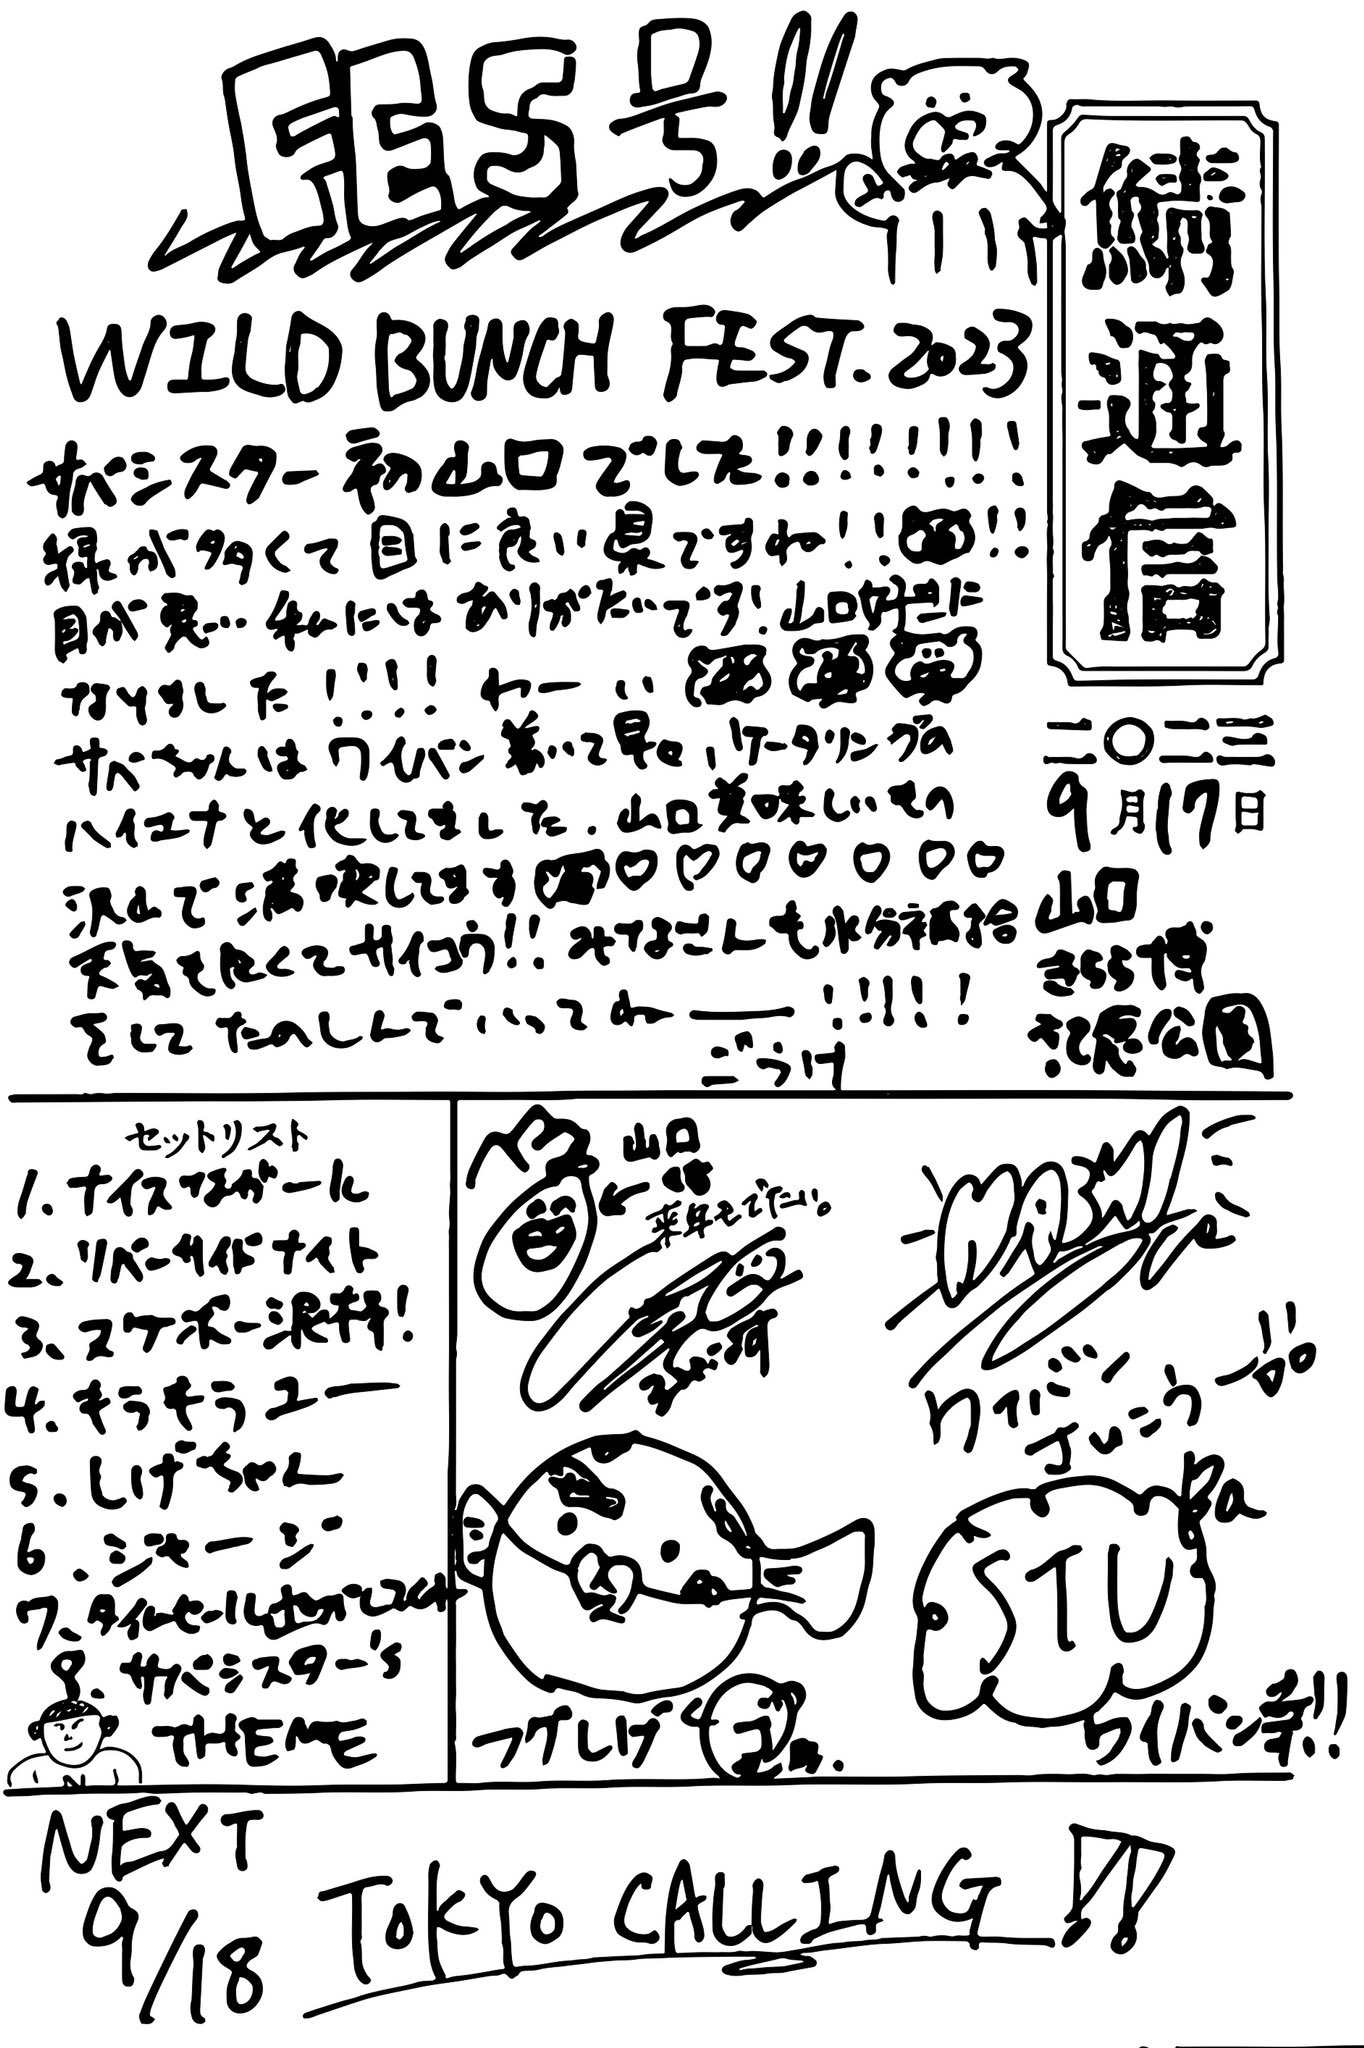 FES号!!
鯖通信
二〇二三
9月17日
山口
きらら博
記念公園
WILD BUNCH FEST. 2023
サバシスター初山口でした!!!!!!!!
緑が多くて目に良い県ですね!!!!
目が悪い私にはありがたいです!山口好きに
なりました!!!!わーい
サバちゃんはワイバン着いて早々、ケータリングの
ハイエナと化してました。山口美味しいもの
沢山で満喫してます♡♡♡♡♡♡♡
天気も良くてサイコウ!!みなさんも水分補給
をしてたのしんでいってねー!!!!!
ごうけ
セットリスト
1. ナイスなガール
2. リバーサイドナイト
3. スケボー泥棒!
4. キラキラユー
5. しげちゃん
6. ジャージ
7. タイムセール逃してくれ
8. サバシスター's
THEME
山口
来年もでたい。
ワイバン
さいこうー!!
フグしげ
STU
Pa
ワイバン幸!!
NEXT
9/18 TOKYO CALLING!!